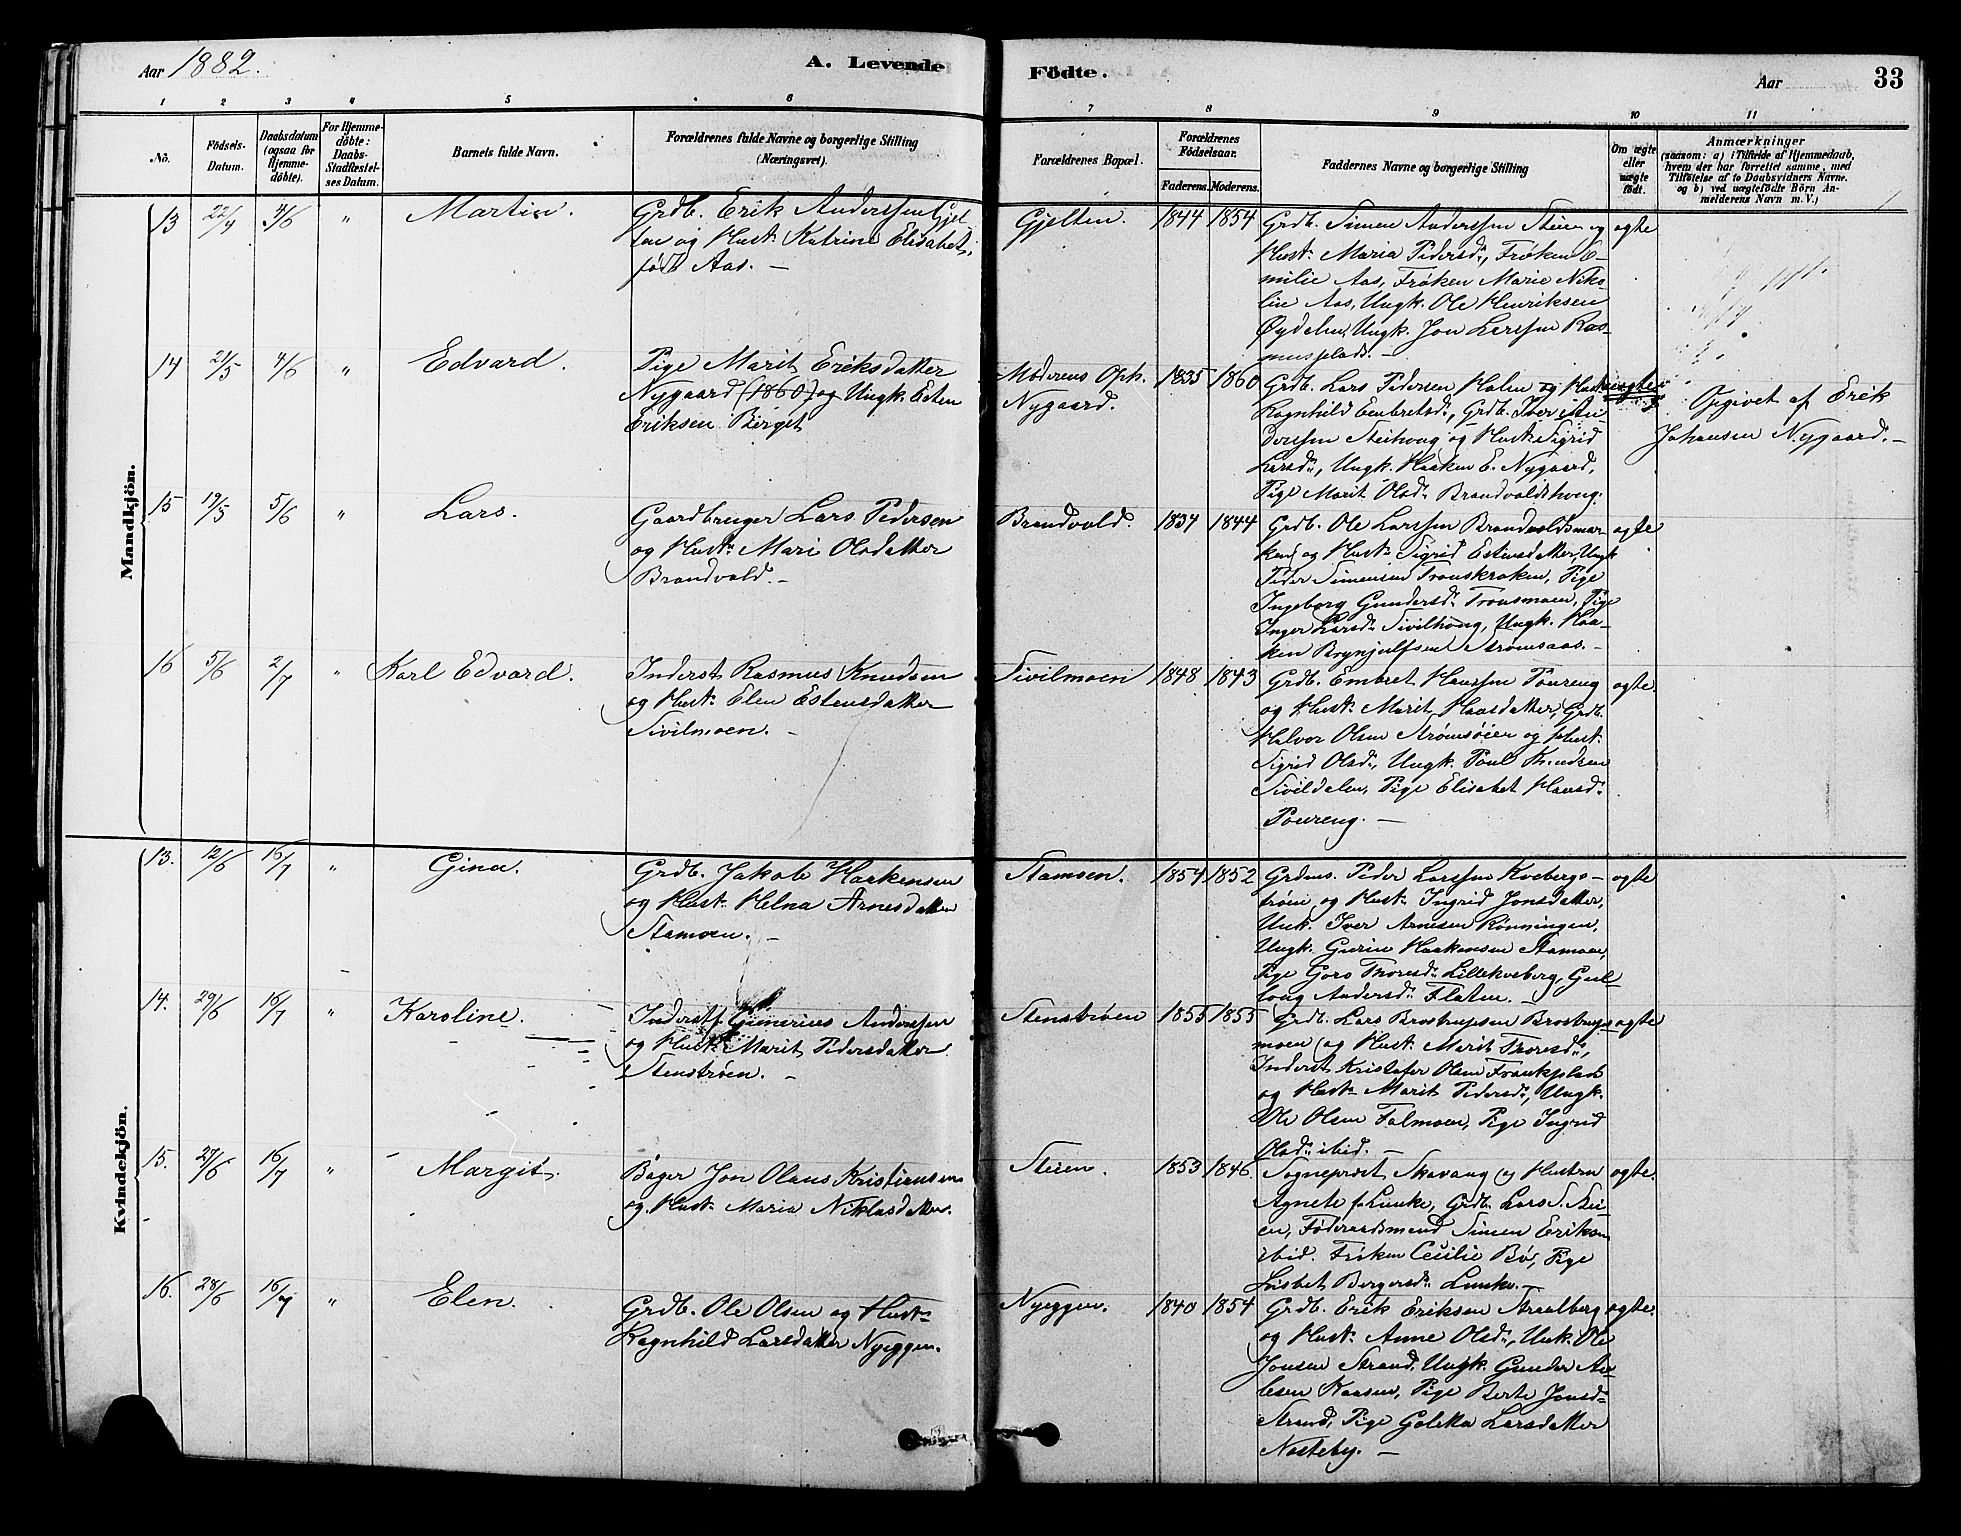 Aar 1882.
A. Levende
Födte.
Aar
33
1 2 3 4 5 6
7 8 9 10 11
No.
Födsels-
Datum.
Daabsdatum
(ogsaa for
Hjemme-
döbte).
For Hjemme-
döbte:
Daabs-
Stadfæstel-
ses Datum.
Barnets fulde Navn.
Forældrenes fulde Navne og borgerlige Stilling
(Næringsvei).
Forældrenes Bopæl.
Forældrenes
Födselsaar.
Faderens. Moderens.
Faddernes Navne og borgerlige Stilling
Om ægte
eller
uægte
födt.
Anmærkninger
(saasom: a) i Tilfælde af Hjemmedaab,
hvem der har forrettet samme, med
Tilföielse af to Daabsvidners Navne.
og b) ved uægtefödte Börn An-
melderens Navn m. V.)
Mandkjön.
13 22/4 4/6 " Martin.
Grdb. Erik Anderssen Gjel-
ten og Hust. Katrine Elisabet,
født Aas. —
Gjelten. 1844 1854
Grdb. Simen Anderssen Steien og
Hust. Maria Pedersd., Frøken E-
milie Aas, Frøken Marie Niko-
line Aas, Ungk. Ole Henriksen
Øydalen, Ungk. Jon Larssen Ras-
musplads. —
ægte
14 21/5 4/6 " Edvard.
Pige Marit Eriksdatter
Nygaard (1860) og Ungk. Esten
Eriksen Berget
Moderens Oph.
Nygaard.
1835 1860
Grdb. Lars Pedersen Holen og Hust.
Ragnhild Embretsd., Grdb. Iver An-
derssen Steihoug og Hust. Sigrid
Larsd., Ungk. Haaken E. Nygaard,
Pige Marit Olsd. Brandvoldshoug.
uægte
Opgivet af Erik
Johansen Nygaard. —
15 19/5 5/6 " Lars.
Gaardbruger Lars Pedersen
og Hust. Mari Olsdatter
Brandvold. —
Brandvold. 1834 1844
Grdb. Ole Larssen Brandvoldsmar-
ken og Hust. Sigrid Estensdatter, Ungk.
Peder Simensen Tronskroken, Pige
Ingeborg Gundersd. Tronsmoen, Pige
Inger Larsd. Sivilhoug, Ungk. Haa-
ken Brynjulfsen Strømsaas. —
ægte
16 5/6 2/7 " Karl Edvard.
Inderst Rasmus Knudsen
og Hust. Elen Estensdatter
Sivilmoen. —
Sivilmoen 1848 1843
Grdb. Embret Hanssen Poureng
og Hust. Marit Hansdatter, Grdb.
Halvor Olsen Strømsøien og Hust.
Sigrid Olsd., Ungk. Poul Knudsen
Sivildalen, Pige Elisabet Hansd.
Poureng. —
ægte.
Kvindekjön.
13. 12/6 16/7 " Gina.
Grdb. Jakob Haakensen
og Hust. Helna Arnesdatter
Stamoen. —
Stamoen. 1854 1852
Grdms. Peder Larssen Kvebergs-
trøen og Hust. Ingrid Jonsdatter,
Unk. Iver Arnesen Rønningen,
Ungk. Gurin Haakensen Stamoen,
Pige Goro Thoresd. Lillekveberg, Gul-
loug Andersd. Flaten. —
ægte
14. 29/6 16/7 " Karoline.
Inderst Gunerius Anderssen
og Hust. Marit Pedersdatter
Stenstrøen. —
Stenstrøen 1855 1855
Grdb. Lars Brostrupsen Brostrups-
moen og Hust. Marit Thoresd.,
Inderst Kristofer Olsen Frankplads
og Hust. Marit Pedersd., Ungk.
Ole Olsen Falmoen, Pige Ingrid
Olsd. ibid. —
ægte
15. 27/6 16/7 " Margit.
Bager Jon Olaus Kristiansen
og Hust. Maria Niklasdatter.
Steien. 1853 1846.
Sogneprest Skavang og Hustru
Agnete f. Lunke, Grdb. Lars S. Stei-
en, Føderaadsmand Simen Eriksen
ibid. Frøken Cecilie Bø, Pige
Lisbet Bergersd. Lunke. —
ægte.
16. 28/6 16/7 " Elen.
Grdb. Ole Olsen og Hust.
Ragnhild Larsdatter Nyeggen.
Nyeggen. 1840 1854
Grdb. Erik Eriksen Straalberg
og Hust. Anne Olsd., Unk. Ole
Jonsen Strand, Ungk. Gunder An-
Kaasen, Pige Berte Jonsd.
Strand, Pige Golekka Larsdatter
Nosteby. —
ægte.